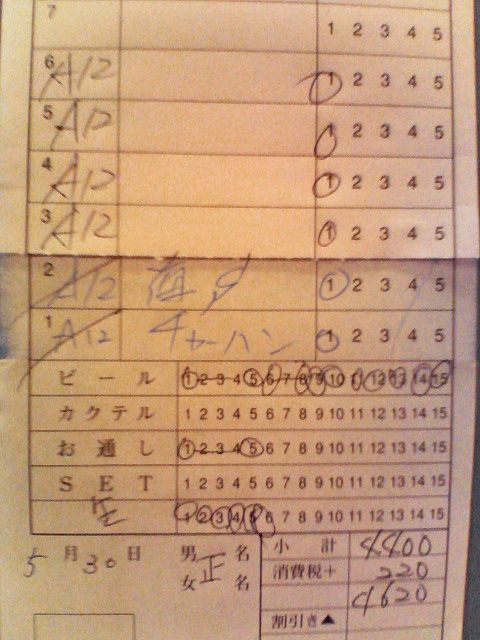 7 1 2 3 4 5
6 A12 1 2 3 4 5
5 A12 1 2 3 4 5
4 A12 1 2 3 4 5
3 A12 1 2 3 4 5
2 A12 1 2 3 4 5
1 A12 チャーハン 1 2 3 4 5
ビール 1 2 3 4 5 6 7 8 9 10 11 12 13 14 15
カクテル 1 2 3 4 5 6 7 8 9 10 11 12 13 14 15
お通し 1 2 3 4 5 6 7 8 9 10 11 12 13 14 15
SET 1 2 3 4 5 6 7 8 9 10 11 12 13 14 15
1 2 3 4 5 6 7 8 9 10 11 12 13 14 15
5月30日 男 女 正 名 名
小計 4400
消費税+ 220
4620
割引き▲